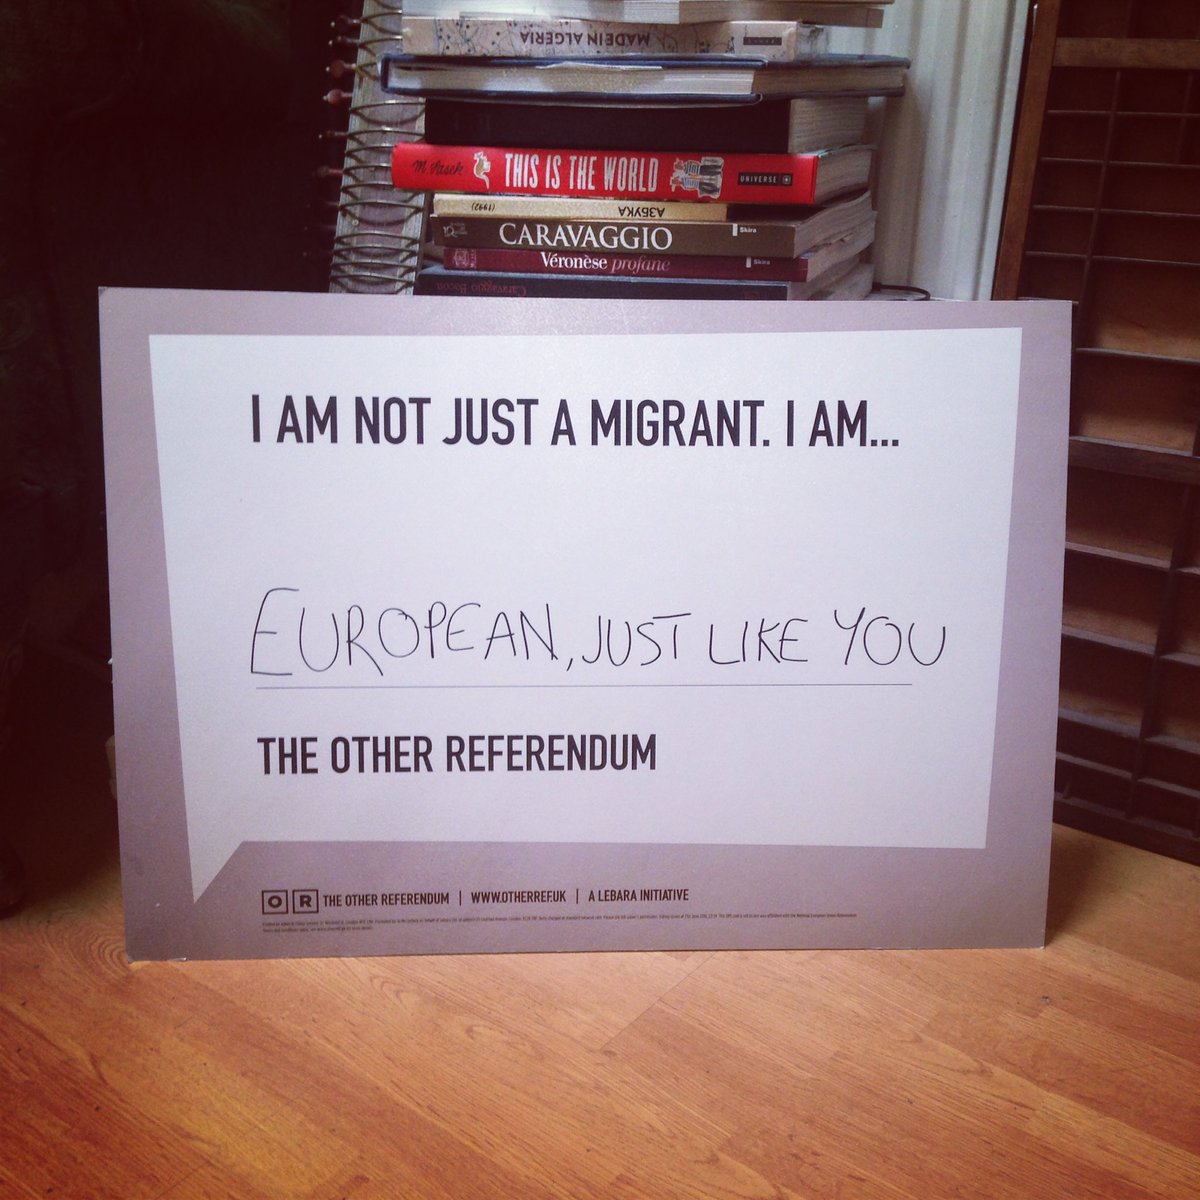 MADE IN ALGERIA
M. Sasek THIS IS THE WORLD UNIVERSE
АЗБУКА (1992)
CARAVAGGIO Skira
Véronèse profane Skira
Caravaggio Bacon
I AM NOT JUST A MIGRANT. I AM...
EUROPEAN, JUST LIKE YOU
THE OTHER REFERENDUM
O R THE OTHER REFERENDUM | WWW.OTHERREF.UK | A LEBARA INITIATIVE